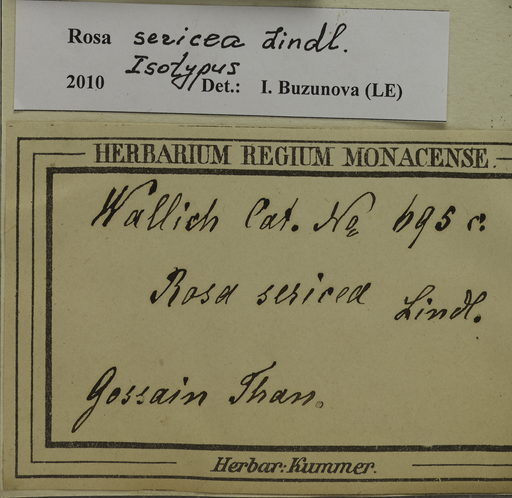 Rosa sericea Lindl.
Isotypus
2010 Det.: I. Buzunova (LE)
HERBARIUM REGIUM MONACENSE.
Wallich Cat. No 695 c.
Rosa sericea Lindl.
Gossain Than.
Herbar: Kummer.